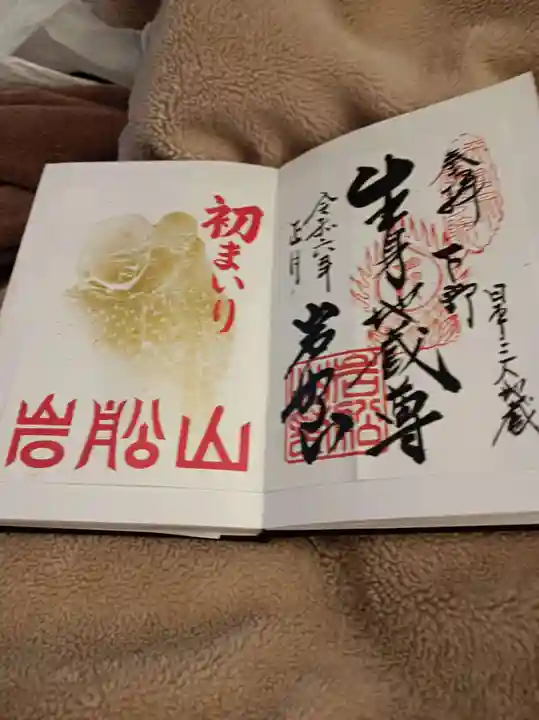 奉拝
下野
日本三大地蔵
生身地蔵尊
令和六年
正月
岩船山
初まいり
岩船山